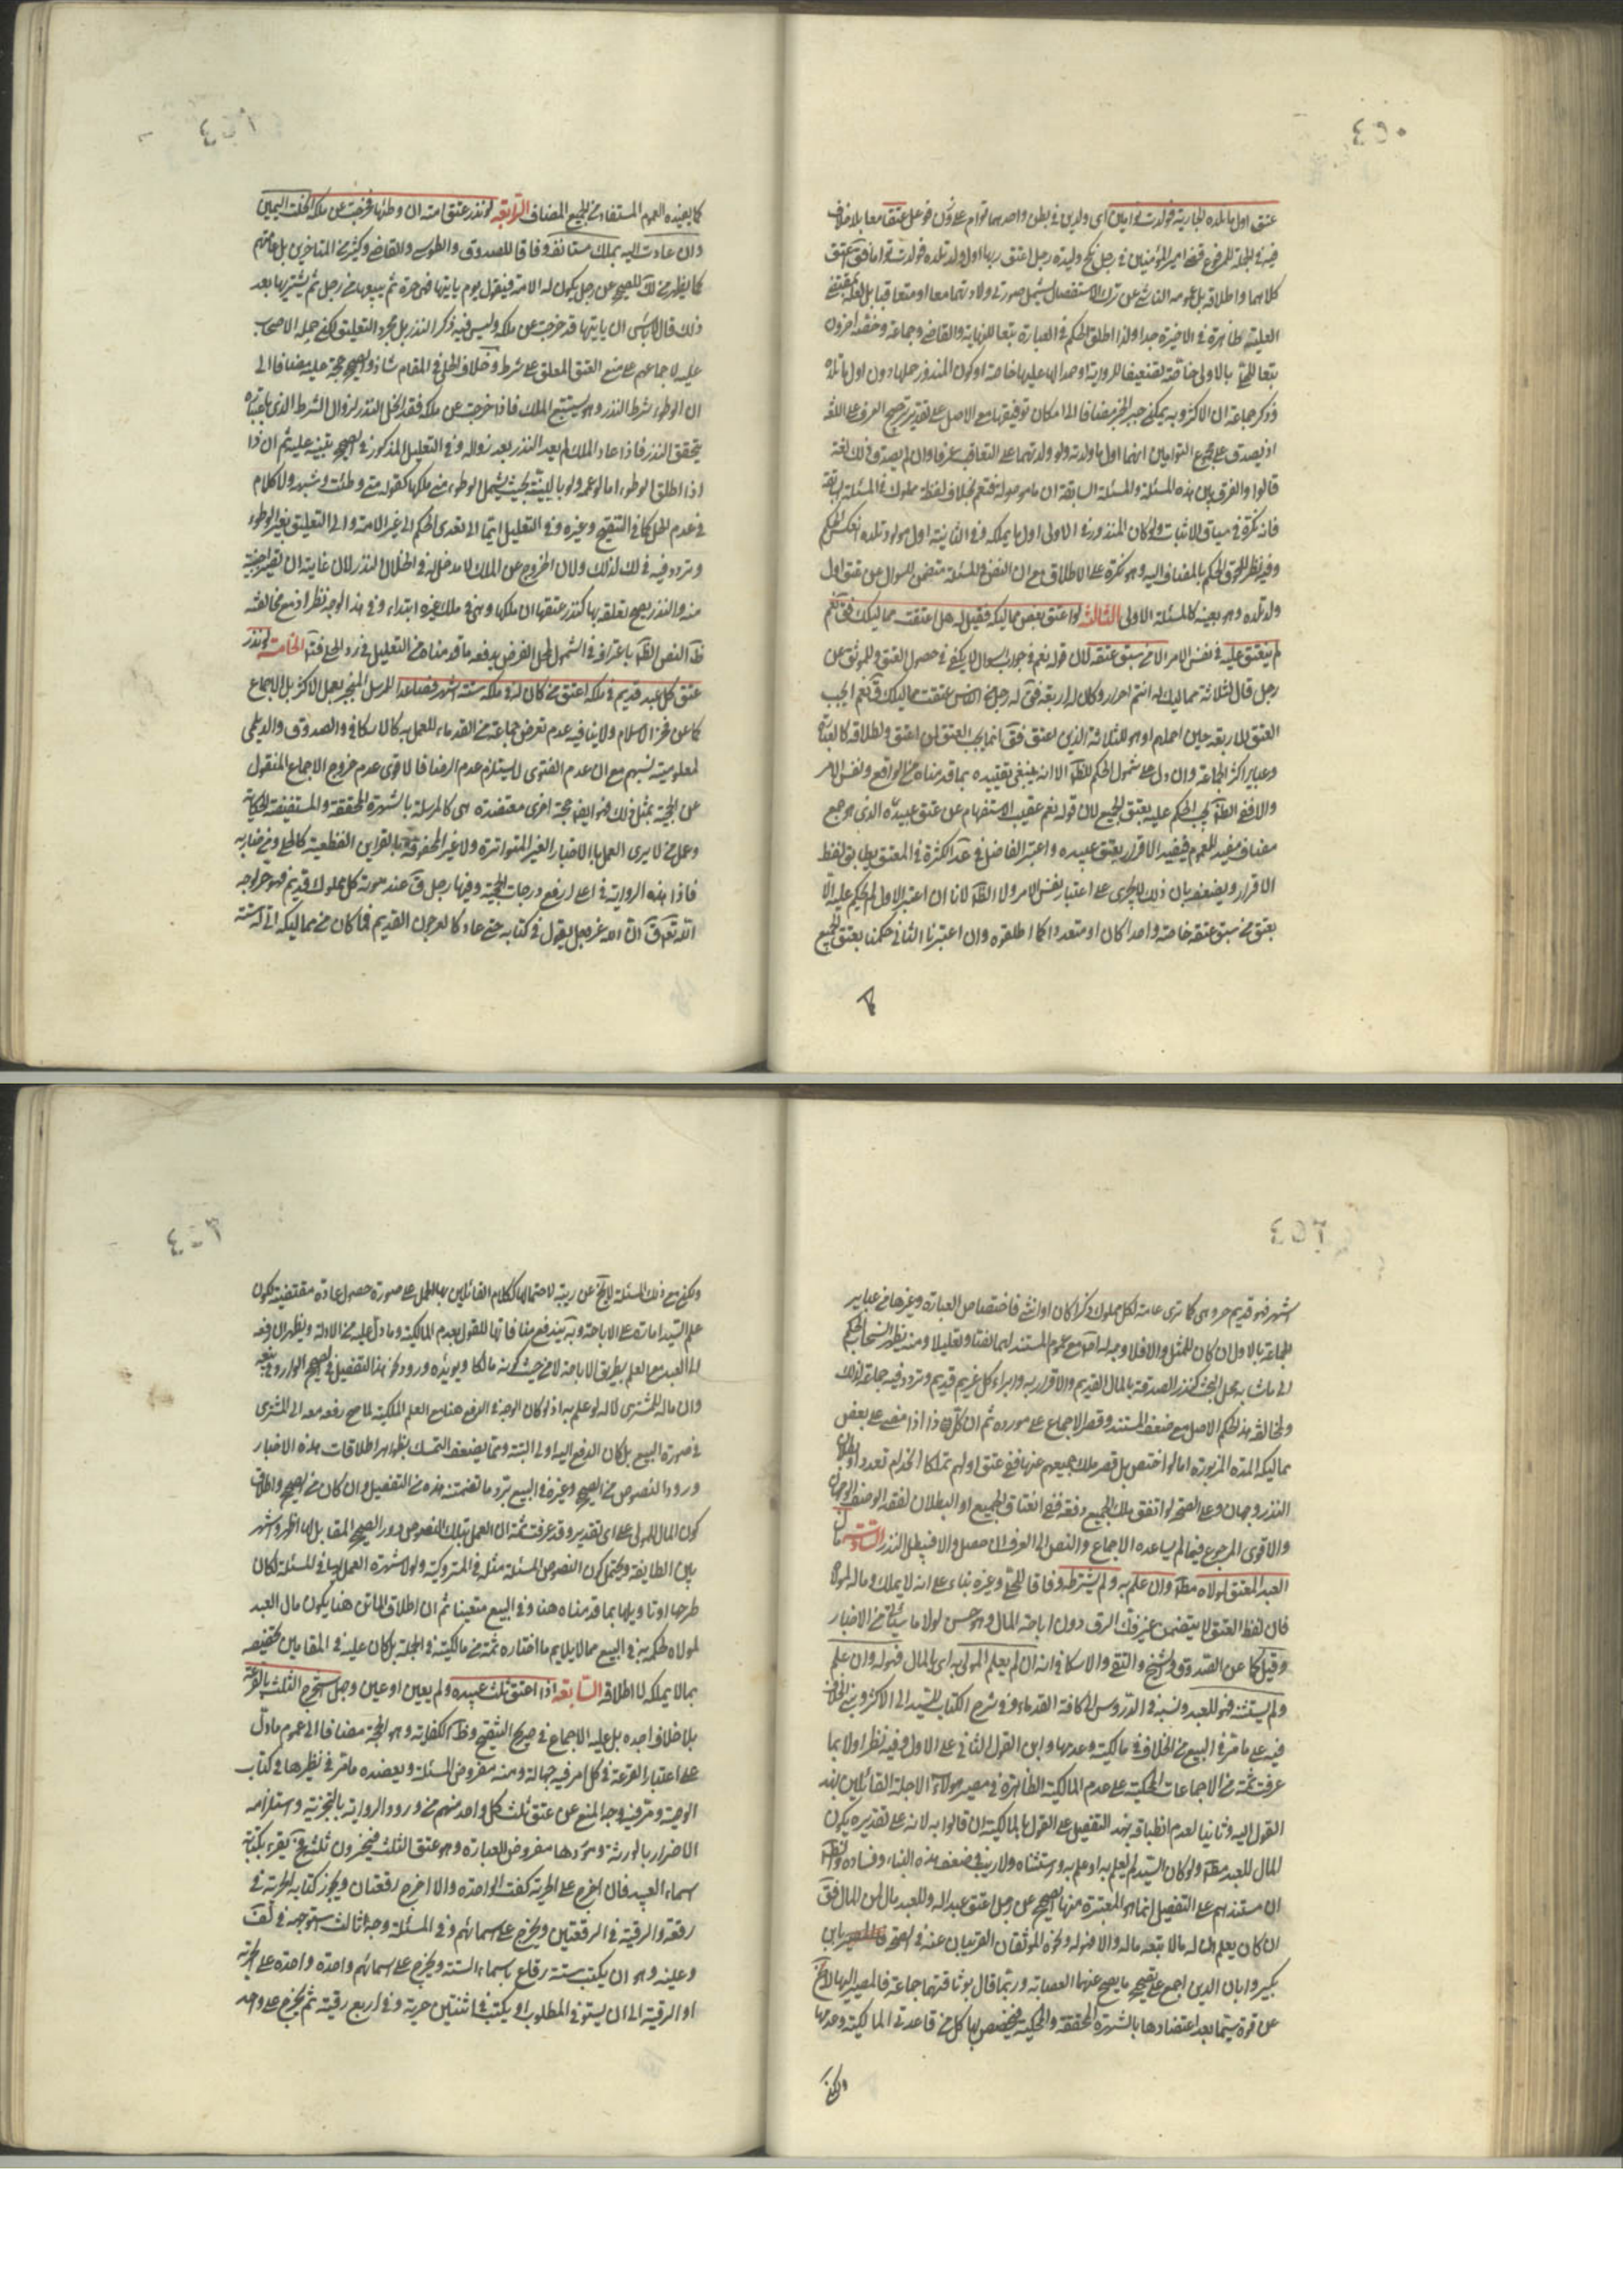 ٤٥٠
عتق اول ما تلده الجارية فولدت توامين اى ولدين فى بطن واحد هما توام على وزن فوعل عتقا معا بلا خلاف
فيه فى الجملة للمرفوع قضى امير المؤمنين فى رجل نكح وليدة رجل اعتق ربها اول ولد تلده فولدت تواما فقال اعتق
كلاهما واطلاقه بل عمومه الناشى عن ترك الاستفصال يشمل صورتى ولادتهما معا او متعاقبا بل لعله مقتضى
العلية ظاهرة فى الاخيرة جدا ولذا اطلق الحكم فى العبارة تبعا للنهاية والقاضى وجماعة وخصه اخرون
تبعا للحلى بالاولى خاصة لتضعيفا للرواية او حملا لها عليها خاصة او كون المنذور حملها دون اول ما تلده
وذكر جماعة ان الاكثر وبه يمكن جبر الخبر مضافا الى امكان توفيقها مع الاصل على تقدير ترجيح العرف على اللغة
اذ يصدق على مجموع التوامين انهما اول ما ولدته ولو ولدتهما على التعاقب عرفا وان لم يصدق ذلك لغة
قالوا والفرق بين هذه المسئلة والمسئلة السابقة ان ما موصولة فتعم بخلاف لفظة مملوك فى المسئلة السابقة
فانه نكرة فى سياق الاثبات ولو كان المنذور فى الاولى اول ما يملكه وفى الثانية اول مولود تلده انعكس الحكم
وفيه نظر للحوق الحكم بالمضاف اليه وهو نكرة على الاطلاق مع ان النص فى المسئلة متضمن للسوال عن عتق اول
ولد تلده وهو بعينه كالمسئلة الاولى الثالثة لو اعتق بعض مماليكه فقيل له هل اعتقت مماليكك فقال نعم
لم ينعتق عليه فى نفس الامر الا من سبق عتقه لان قوله نعم فى جواب السوال لا يكفى فى حصول العتق وللموثق عن
رجل قال لثلاثة مماليك له انتم احرار وكان له اربعة فقال له رجل من الناس اعتقت مماليكك قال نعم ايجب
العتق للاربعة حين اجملهم او هو للثلاثة الذين اعتق فقال انما يجب العتق لمن اعتق ولاطلاقه كالعبارة
وعباير اكثر الجماعة وان دل على شمول الحكم للظاهر الا انه ينبغى تقييده بما قدمناه من الواقع ونفس الامر
والا ففى الظاهر يجب الحكم عليه بعتق الجميع لان قوله نعم عقيب الاستفهام عن عتق عبيده الذى هو جمع
مضاف مفيد للعموم فيفيد الاقرار بعتق عبيده واعتبر الفاضل فى القواعد الكثرة فى المعتق ليطابق لفظ
الاقرار ويضعف بان ذلك لا يجرى على اعتبار نفس الامر ولا الظاهر لانا ان اعتبرنا الاول لم يحكم عليه الا
بعتق من سبق عتقه خاصة واحدا كان او متعددا كما اطلقوه وان اعتبرنا الثانى حكمنا بعتق الجميع
٤٥١
كما يفيده العموم المستفاد من الجمع المضاف الرابعة لو نذر عتق امته ان وطئها فخرجت عن ملكه انحلت اليمين
وان عادت اليه بملك مستانف وفاقا للصدوق والطوسى والقاضى وكثير من المتاخرين بل عامتهم
كما يظهر من لك للصحيح عن رجل يكون له الامة فيقول يوم ياتيها فهى حرة ثم يبيعها من رجل ثم يشتريها بعد
ذلك قال لا باس ان ياتيها قد خرجت عن ملكه وليس فيه ذكر النذر بل مجرد التعليق لكن حمله الاصحاب
عليه لاجماعهم على منع العتق المعلق على شرط وخلاف الحلى فى المقام شاذ والصحيح حجة عليه مضافا الى
ان الوطوء شرط النذر وهو يستتبع الملك فاذا خرجت عن ملكه فقد انحل النذر لزوال الشرط الذى باعتباره
يتحقق النذر فاذا عاد الملك لم يعد النذر بعد زواله وفى التعليل المذكور فى الصحيح تنبيه عليه ثم ان ذا
اذا اطلق الوطوء اما لو عممه ولو بالنية بحيث يشمل الوطوء من غير ملكها كقوله متى وطئت وشبهه ولا كلام
فى عدم الحل كما فى التنقيح وغيره وفى التعليل ايماء الى تعدى الحكم الى غير الامة والى التعليق بغير الوطوء
وتردد فيه فى لك لذلك ولان الخروج عن الملك لا مدخل له فى انحلال النذر لان غايته ان تصير اجنبية
منه والنذر يصح تعلقه بها كنذر عتقها ان ملكها وهى فى ملك غيره ابتداء وفى هذا الوجه نظر اذ مع مخالفته
ظاهر النص الظاهر باعترافه فى الشمول لمحل الفرض يدفعه ما قدمناه من التعليل فى رد الحلى فتامل الخامسة لو نذر
عتق كل عبد قديم فى ملكه اعتق من كان له فى ملكه ستة اشهر فصاعدا للمرسل المنجبر بعمل الاكثر بل الاجماع
كما عن فخر الاسلام ولا ينافيه عدم تعرض جماعة من القدماء للعمل به كالاسكافى والصدوق والديلمى
لمعلومية نسبهم مع ان عدم الفتوى لا يستلزم عدم الرضا فالاقوى عدم خروج الاجماع المنقول
عن الحجية بمثل ذلك فهو ايضا حجة اخرى معتضدة هى كالمرسلة بالشهرة المحققة والمستفيضة الحكاية
وعمل من لا يرى العمل بالاخبار الغير المتواترة ولا غير المحفوفة بالقراين القطعية كالحلى ومن ضارعه
فاذا هذه الرواية فى اعلى ارفع درجات الحجية وفيها رجل قال عند موته كل مملوك قديم فهو حر لوجه
الله تعالى قال ان الله عز وجل يقول فى كتابه حتى عاد كالعرجون القديم فما كان من مماليكه اتى له ستة
٤٥٢
اشهر فهو قديم حر وهى كما ترى عامة لكل مملوك ذكرا كان او انثى فاختصاص العبارة وغيرها من عباير
الجماعة بالاول ان كان للمثل والا فلا وجه له مع عموم المستند لهما لفظا وتعليلا ومنه يظهر انسحاب الحكم
الى ما شابه محل البحث كنذر الصدقة بالمال القديم والاقرار به وابراء كل غريم قديم وتردد فيه جماعة لذلك
ولمخالفة هذا الحكم الاصل مع ضعف المستند وقصر الاجماع على مورده ثم ان كل ذا اذا مضى على بعض
مماليكه المدة المزبورة اما لو اختص بل قصر ملك جميعهم عنها ففى عتق اولهم تملكا اتحد ام تعدد او بطلان
النذر وجهان وعلى الصحة لو اتفق ملك الجميع دفعة ففى انعتاق الجميع او البطلان لفقد الوصف الوجهان
والاقوى المرجوع فيما لم يساعده الاجماع والنص الى العرف ان حصل والا فيبطل النذر السادسة مال
العبد المعتق لمولاه مطلقا وان علم به ولم يشترطه وفاقا للحلى وغيره بناء على انه لا يملك وماله لمولاه
فان لفظ العتق لا يتضمن غير فك الرق دون اباحة المال وهو حسن لولا ما سيأتى من الاخبار
وقيل كما عن الصدوق والشيخ والتقى والاسكافى انه ان لم يعلم المولى به اى بالمال فهو له وان علم
ولم يستثنه فهو للعبد ونسبه فى الدروس الى كافة القدماء وفى شرح الكتاب للسيد الى الاكثر وبنى الخلاف
فيه على ما مر فى البيع من الخلاف فى مالكيته وعدمها وابن القول الثانى على الاول وفيه نظر اولا بما
عرفت ثمة من الاجماعات المحكية على عدم المالكية الظاهرة فى مصير هولاء الاجلة القائلين بهذ
القول اليه وثانيا لعدم انطباقه بهذ التفصيل على القول بالمالكية ان قالوا به لانه على تقديره يكون
المال للعبد مطلقا ولو كان السيد لم يعلم به او علم به واستثناه ولا ريب فى ضعف هذه البناء وفساده والظاهر
ان مستندهم على التفصيل انما هو المعتبرة منها الصحيح عن رجل اعتق عبدا له وللعبد مال لمن المال فقال
ان كان يعلم ان له مالا تبعه ماله والا فهو له ونحوه الموثقان القريبان عنه فى الصحة بابن
بكير وابان الذين اجمع على تصحيح ما يصح عنهما العصابة وربما قال بوثاقتهما جماعة فالمصير اليها لا يخ
عن قوة سيما بعد اعتضادها بالشهرة المحققة والمحكية فيخصص بها كل من قاعدتى المالكية وعدمها
ولكن
٤٥٣
ولكن مع ذلك المسئلة لا يخ عن ريبة لاحتمالها ككلام القائلين بها الحمل على صورة حصول عادة مقتضية لكون
علم السيد امارة على الاباحة وبه يندفع منافاتها للقول بعدم المالكية وما دل عليه من الادلة ويظهر ان دفعه
الى العبد مع العلم بطريق الاباحة لا من حيث كونه مالكا ويويده ورود نحو هذا التفصيل فى الصحيح الوارد فى بيعه
وان ماله للمشترى كماله لو علم به اذ لو كان الوجه فى الدفع هنا مع العلم الملكية لما صح دفعه معه الى المشترى
فى صورة البيع بل كان الدفع اليه اولى البتة ومما يضعف التمسك بظواهر اطلاقات هذه الاخبار
ورود النصوص من الصحيح وغيره فى البيع برد ما تضمنته هذه من التفصيل وان كان من الصحيح واطلاق
كون المال للمولى على اى تقدير وقد عرفت ثمة ان العمل بتلك النصوص ورد الصحيح المقابل لها اظهر واشهر
بين الطايفة ويحتمل كون النصوص المسئلة مثله فى المتروكية ولولا شهرة العمل بها فى المسئلة لكان
طرحها او تاويلها بما قدمناه هنا وفى البيع متعينا ثم ان اطلاق الماتن هنا يكون مال العبد
لمولاه كحكمه به فى البيع مما لا يلايم ما اختاره ثمة من مالكيته فى الجملة بل كان عليه فى المقامين تخصيصه
بما لا يملكه لا اطلاقه السابعة اذا اعتق ثلث عبيده ولم يعين او عين وجهل استخرج الثلث بالقرعة
بلا خلاف اجده بل عليه الاجماع فى صريح التنقيح وظاهر الكفاية وهو الحجة مضافا الى عموم ما دل
على اعتبار القرعة فى كل امر فيه جهالة ومنه مفروض المسئلة ويعضده ما مر فى نظيرها فى كتاب
الوصية ومر فيه وجه المنع عن عتق ثلث كل واحد منهم من ورود الرواية بالتجزية واستلزامه
الاضرار بالورثة وموردها مفروض العبارة وهو عتق الثلث فيجزون ثلثة ثم يقرع بكتابة
اسماء العبيد فان اخرج على الحرية كفت الواحدة والا اخرج رقعتان ويجوز كتابة الحرية فى
رقعة والرقية فى الرقعتين ويخرج على اسمائهم وفى المسئلة وجه ثالث استوجهه فى لك
وعليه وهو ان يكتب ستة رقاع باسماء الستة ويخرج على اسمائهم واحدة واحدة على الحرية
او الرقية الى ان يستوفى المطلوب او يكتب فى اثنتين حرية وفى اربع رقية ثم يخرج على واحد